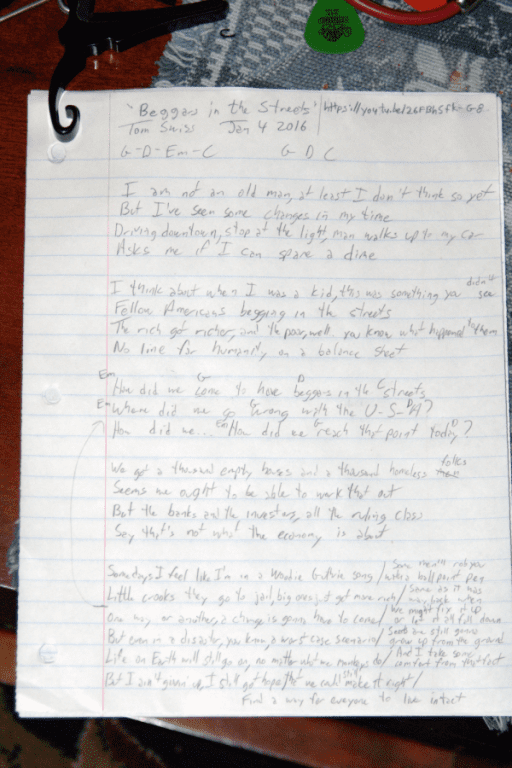 "Beggars in the Streets"
Tom Swiss Jan 4 2016
G-D-Em-C G D C
I am not an old man, at least I don't think so yet
But I've seen some changes in my time
Driving downtown, stop at the light, man walks up to my car
Asks me if I can spare a dime
I think about when I was a kid, this was something you didn't see
Fellow Americans begging in the streets
The rich got richer, and the poor, well you know what happened to them
No line for humanity on a balance sheet
Em G D C
How did we come to have beggars in the streets
Em G D
Where did we go wrong with the U-S-A?
How did me... How did we reach this point today?
We got a thousand empty houses and a thousand homeless folks
Seems we ought to be able to work that out
But the banks and the investors, all the ruling class
Say that's not what the economy is about
Some days I feel like I'm in a Woodie Guthrie song / Some men'll rob you with a ball point pen
Little crooks they go to jail, big ones get more / Same as it was way back when
One way or another, a change is gonna have to come / We might fix it up or let it all fall down
But even in a disaster, you know, a worst case scenario / Seeds are still gonna grow up from the ground
Life on Earth will still go on, no matter what we monkeys do / And I take some comfort from that fact
But I ain't givin' up, I still got hope that we could still make it right /
Find a way for everyone to live intact